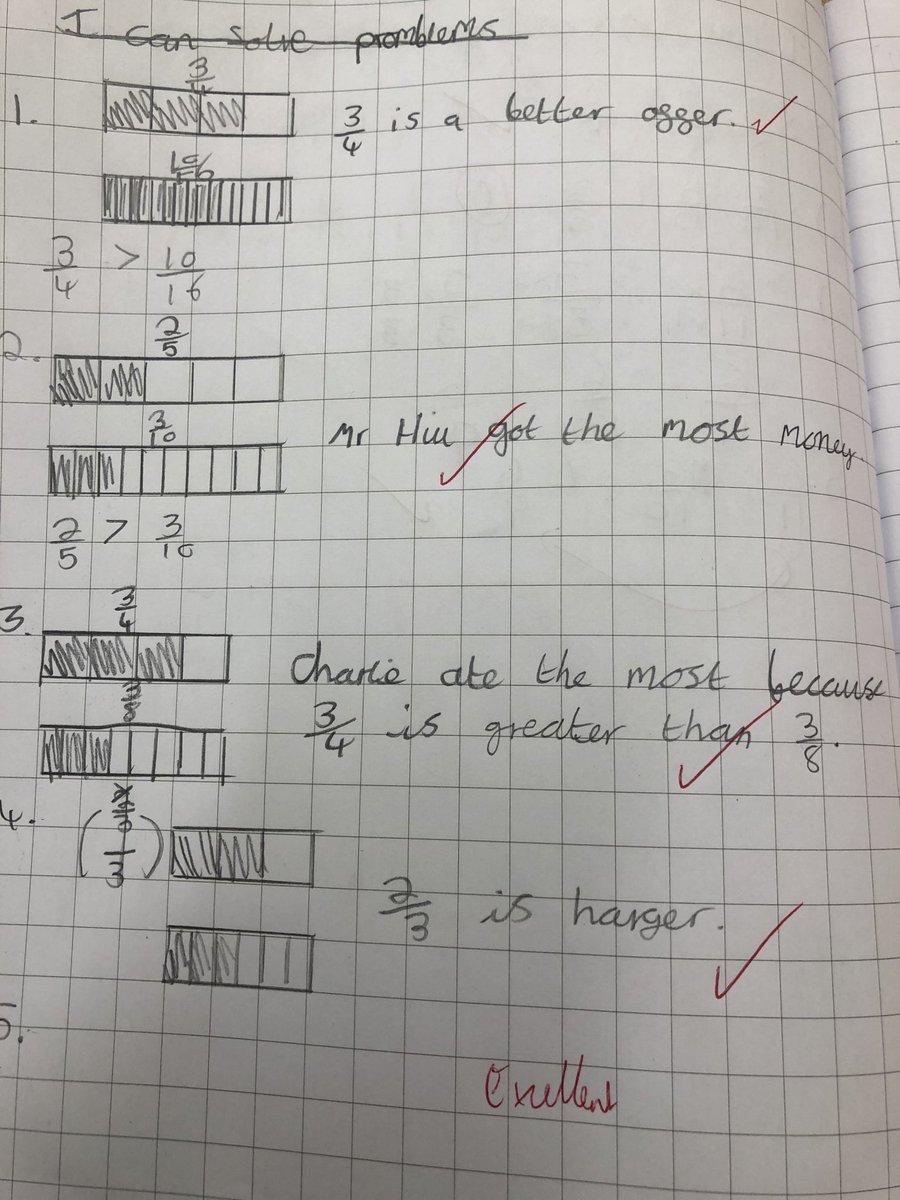 I can solve promblems
3/4
1.
3/4 is a better ogger.
10/16
3/4 > 10/16
2.
2/5
3/10
Mr Hill got the most money.
2/5 > 3/10
3.
3/4
Charlie ate the most because
3/4 is greater than 3/8.
4.
2/3 is harger.
5.
Excellent